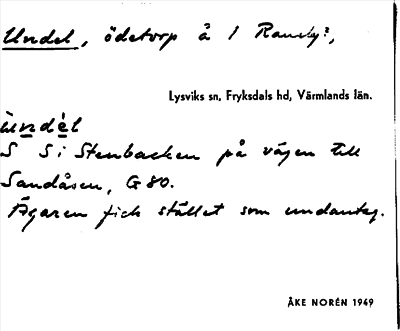 Undel, ödetorp å 1 Ransby?,
Lysviks sn, Fryksdals hd, Värmlands län.
ùndèl
S Si Stenbacken på vägen till
Sandåsen, G 80.
Ägaren fick stället som undantag.
ÅKE NORÉN 1949